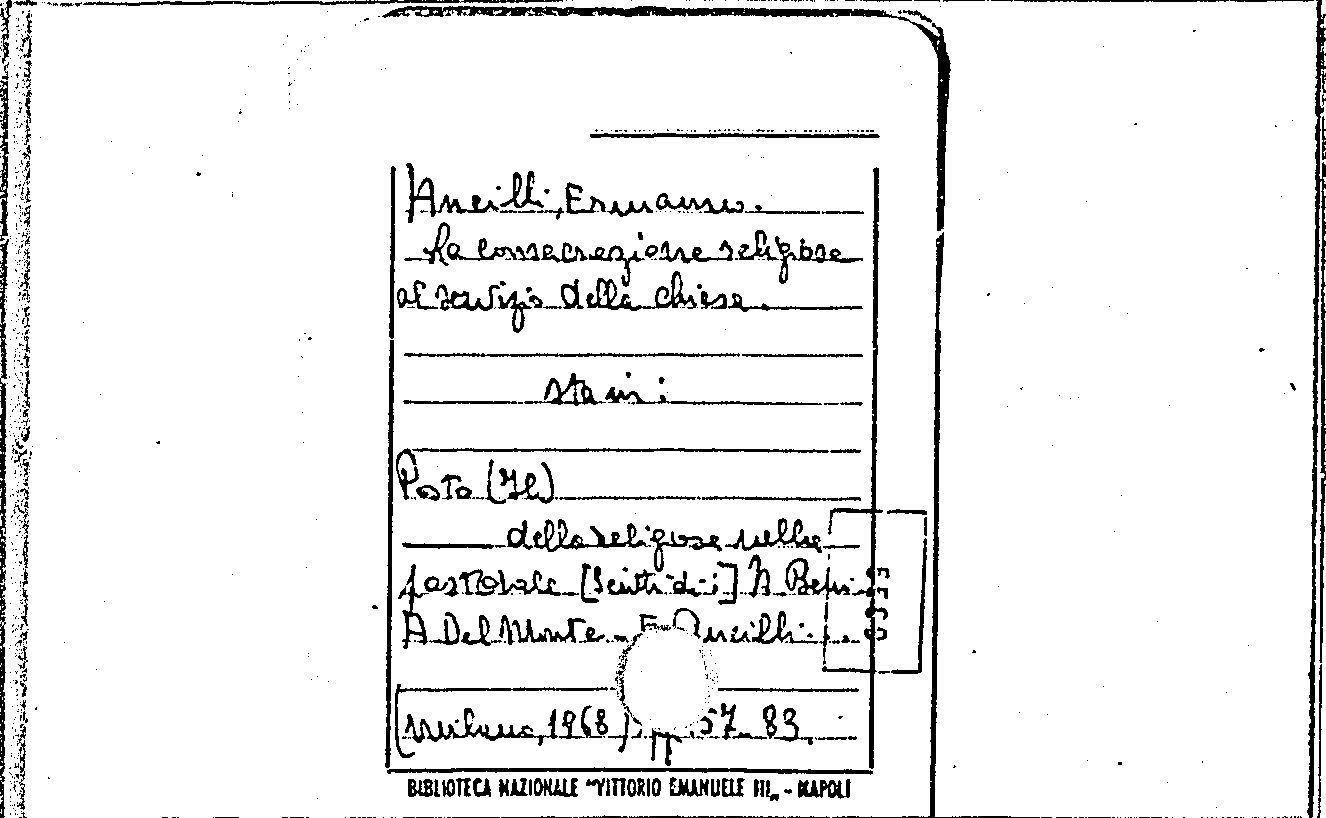 Ancilli, Ermanno.
La consacrazione religiosa
al servizio della chiesa.
sta in:
Posto (Il)
della religiosa nella
pastorale [Scritti di:] A
A Del Monte - E Ancilli...
(Milano, 1968), pp. 57-83.
BIBLIOTECA NAZIONALE "VITTORIO EMANUELE III„ - NAPOLI